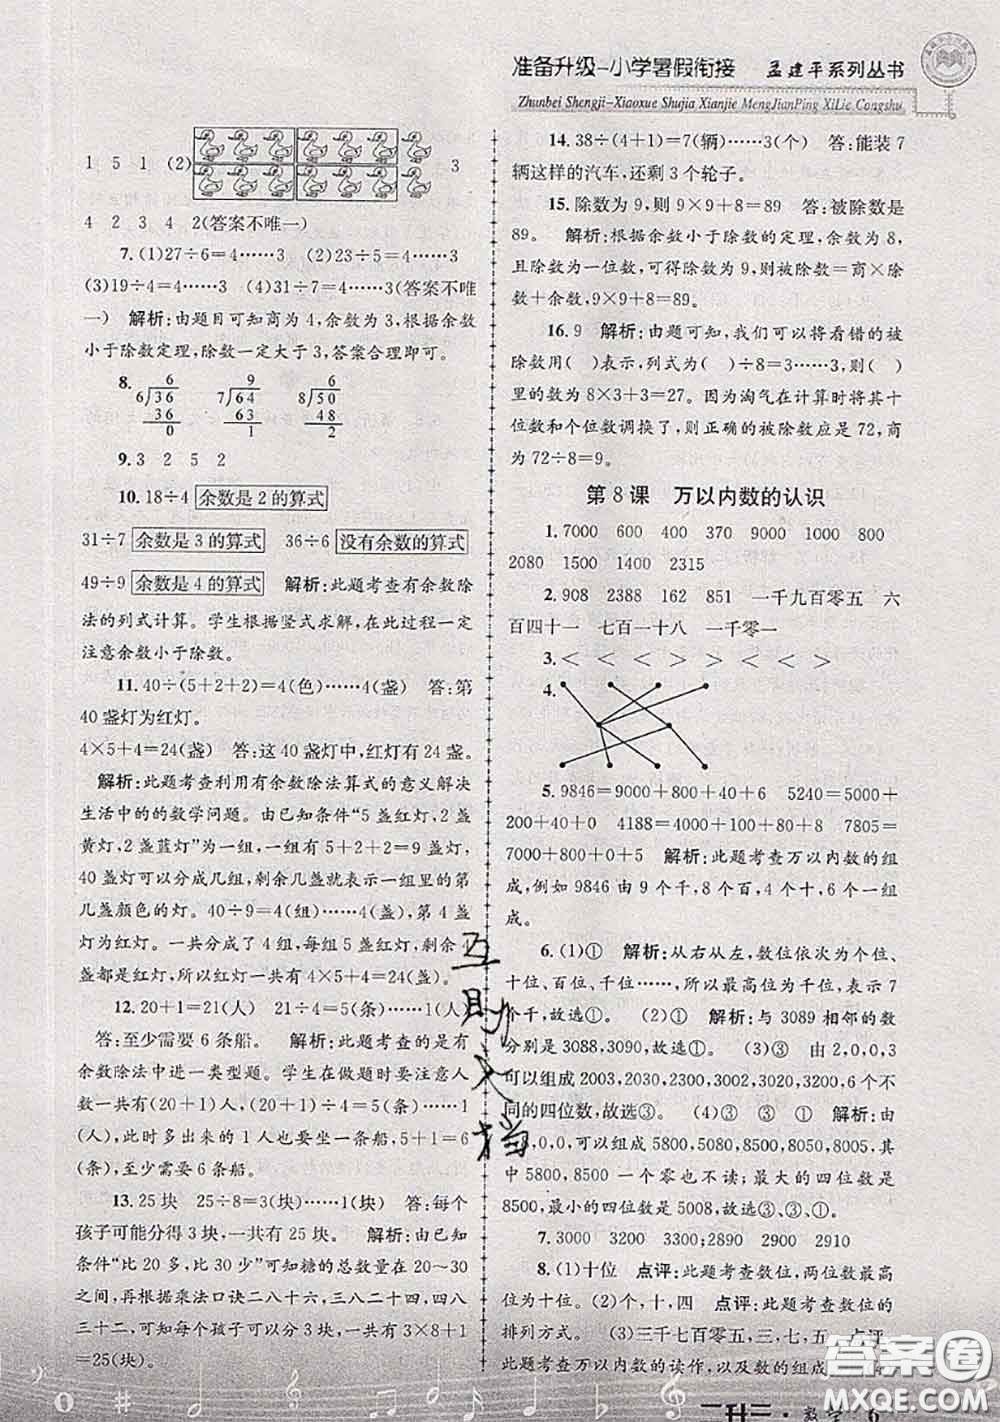 准备升级-小学暑假衔接 孟建平系列丛书
Zhunbei Shengji-Xiaoxue Shujia Xianjie MengJianPing XiLie Congshu
1 5 1 (2) 3
4 2 3 4 2(答案不唯一)
7.(1)27÷6=4……3 (2)23÷5=4……3
(3)19÷4=4……3 (4)31÷7=4……3(答案不唯
一) 解析:由题目可知商为4,余数为3,根据余数
小于除数定理,除数一定大于3,答案合理即可。
8. 6 9 6
6)36 7)64 8)50
36 63 48
0 1 2
9.3 2 5 2
10.18÷4 余数是2的算式
31÷7 余数是3的算式 36÷6 没有余数的算式
49÷9 余数是4的算式 解析:此题考查有余数除
法的列式计算。学生根据竖式求解,在此过程一定
注意余数小于除数。
11.40÷(5+2+2)=4(色)……4(盏) 答:第
40盏灯为红灯。
4×5+4=24(盏) 答:这40盏灯中,红灯有24盏。
解析:此题考查利用有余数除法算式的意义解决
生活中的的数学问题。由已知条件“5盏红灯,2盏
黄灯,2盏蓝灯”为一组,一组有5+2+2=9(盏)
灯可以分成几组,剩余几盏就表示一组里的第
几盏颜色的灯。40÷9=4(组)……4(盏),第4盏
灯为红灯。一共分成了4组,每组5盏红灯,剩余4
盏都是红灯,所以红灯一共有4×5+4=24(盏)。
12.20+1=21(人) 21÷4=5(条)……1(人)
答:至少需要6条船。 解析:此题考查的是有
余数除法中进一类型题。学生在做题时要注意人
数一共有(20+1)人,(20+1)÷4=5(条)……1
(人),此时多出来的1人也需要一条船,5+1=6
(条),至少需要6条船。
13.25块 25÷8=3(块)……1(块) 答:每个
孩子可能分得3块,一共有25块。 解析:由已知
条件“比20多,比30少”可知糖的总数应在20~30
之间,再根据乘法口诀二八十六,三八二十四,四八
三十二,可知每个孩子可以分3块,一共有3×8+1
=25(块)。
14.38÷(4+1)=7(辆)……3(个) 答:能装7
辆这样的汽车,还剩3个轮子。
15.除数为9,则9×9+8=89 答:被除数是
89。 解析:根据余数小于除数的定理,余数为8,
且除数为一位数,可得除数为9,则被除数=商×除
数+余数,为9×9+8=89。
16.9 解析:由题可知,我们可以将看错的被
除数用( )表示,列式为( )÷8=3……3,则( )
里的数为8×3+3=27。因为淘气在计算时将其十
位数和个位数调换了,则正确的被除数应是72,商
为72÷8=9。
第8课 万以内数的认识
1.7000 600 400 370 9000 1000 800
2080 1500 1400 2315
2.908 2388 162 851 一千九百零五 六
百四十一 七百一十八 一千零一
3.< < < > > > < <
4.
5.9846=9000+800+40+6 5240=5000+
200+40+0 4188=4000+100+80+8 7805=
7000+800+0+5 解析:此题考查万以内数的组
成,例如9846由9个千,8个百,4个十,6个一组
成。
6.(1)① 解析:从右从左,数位依次为个位、
十位、百位、千位……,所以最高位为千位,表示7
个千,故选①。 (2)① 解析:与3089相邻的数
分别是3088,3090,故选①。 (3)③ 由2,0,3
可以组成2003,2030,2300,3002,3020,3200这6个不
同的四位数,故选③。 (4)③ ③ ① 解析:由
5,8,0,0,可以组成5800,5080,8500,8050,8005。其
中5800,8500一个零也不读;最大的四位数是
8500,最小的四位数是5008,故选③、③、①。
7.3000 3100 2890 2900 2910
8.(1)十位 点评:此题考查数位,两位数最高
位为十位。(2)个,十,四 点评:此题考查数位的
排列方式。 (3)三千七百零五,三 点评
此题考查万以内数的读作,以及数的组成
互助文档
答案圈
MXQE.COM
二升三·数学